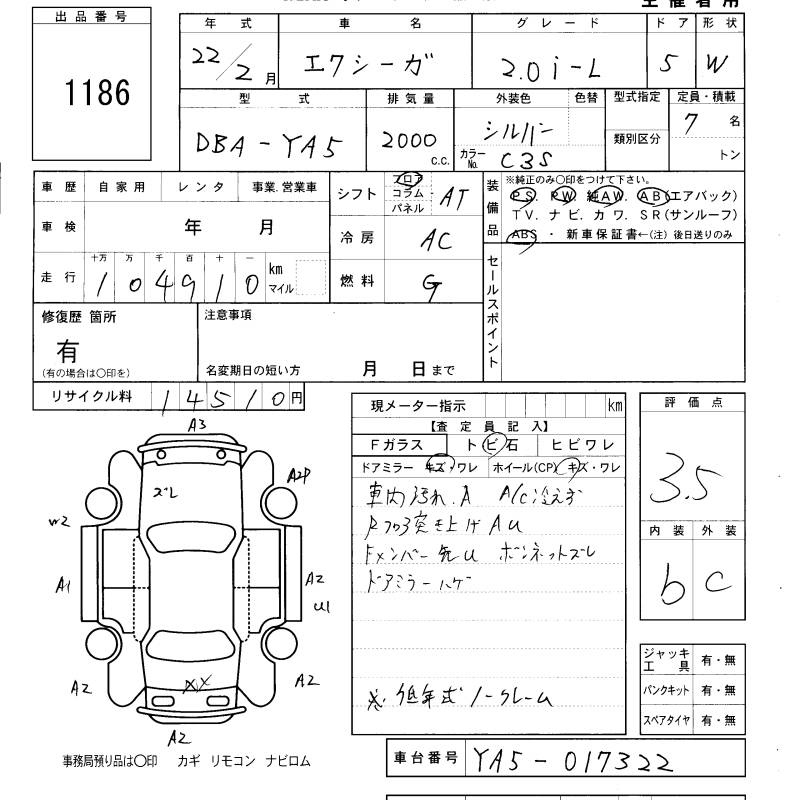 主催者用
出品番号
1186
年式 車名 グレード ドア 形状
22/2月 エクシーガ 2.0i-L 5 W
型式 排気量 外装色 色替 型式指定 定員・積載
DBA-YA5 2000c.c. シルバー 類別区分 7名
カラーNo. C3S トン
車歴 自家用 レンタ 事業.営業車
車検 年 月
走行 十万 万 千 百 十 一
104910 km マイル
シフト フロア コラム パネル AT
冷房 AC
燃料 G
装備品 ※純正のみ○印をつけて下さい。
PS. PW. 純AW. AB(エアバック)
TV. ナビ. カワ. SR(サンルーフ)
ABS ・ 新車保証書←(注)後日送りのみ
セールスポイント
修復歴 箇所
有
(有の場合は○印を)
注意事項
名変期日の短い方 月 日まで
リサイクル料 14510円
現メーター指示 km
【査定員記入】
Fガラス トビ石 ヒビワレ
ドアミラー キズ・ワレ ホイール(CP) キズ・ワレ
車内汚れ.A A/C冷えず
Rフロア突き上げ AU
Fメンバー先U ボンネットズレ
ドアミラーハゲ
※.低年式ノークレーム
評価点
3.5
内装 外装
b C
ジャッキ工具 有・無
パンクキット 有・無
スペアタイヤ 有・無
A3
ズレ
A2P
W2
A1
A2
U1
A2
XX
A2
A2
事務局預り品は○印 カギ リモコン ナビロム
車台番号 YA5-017322